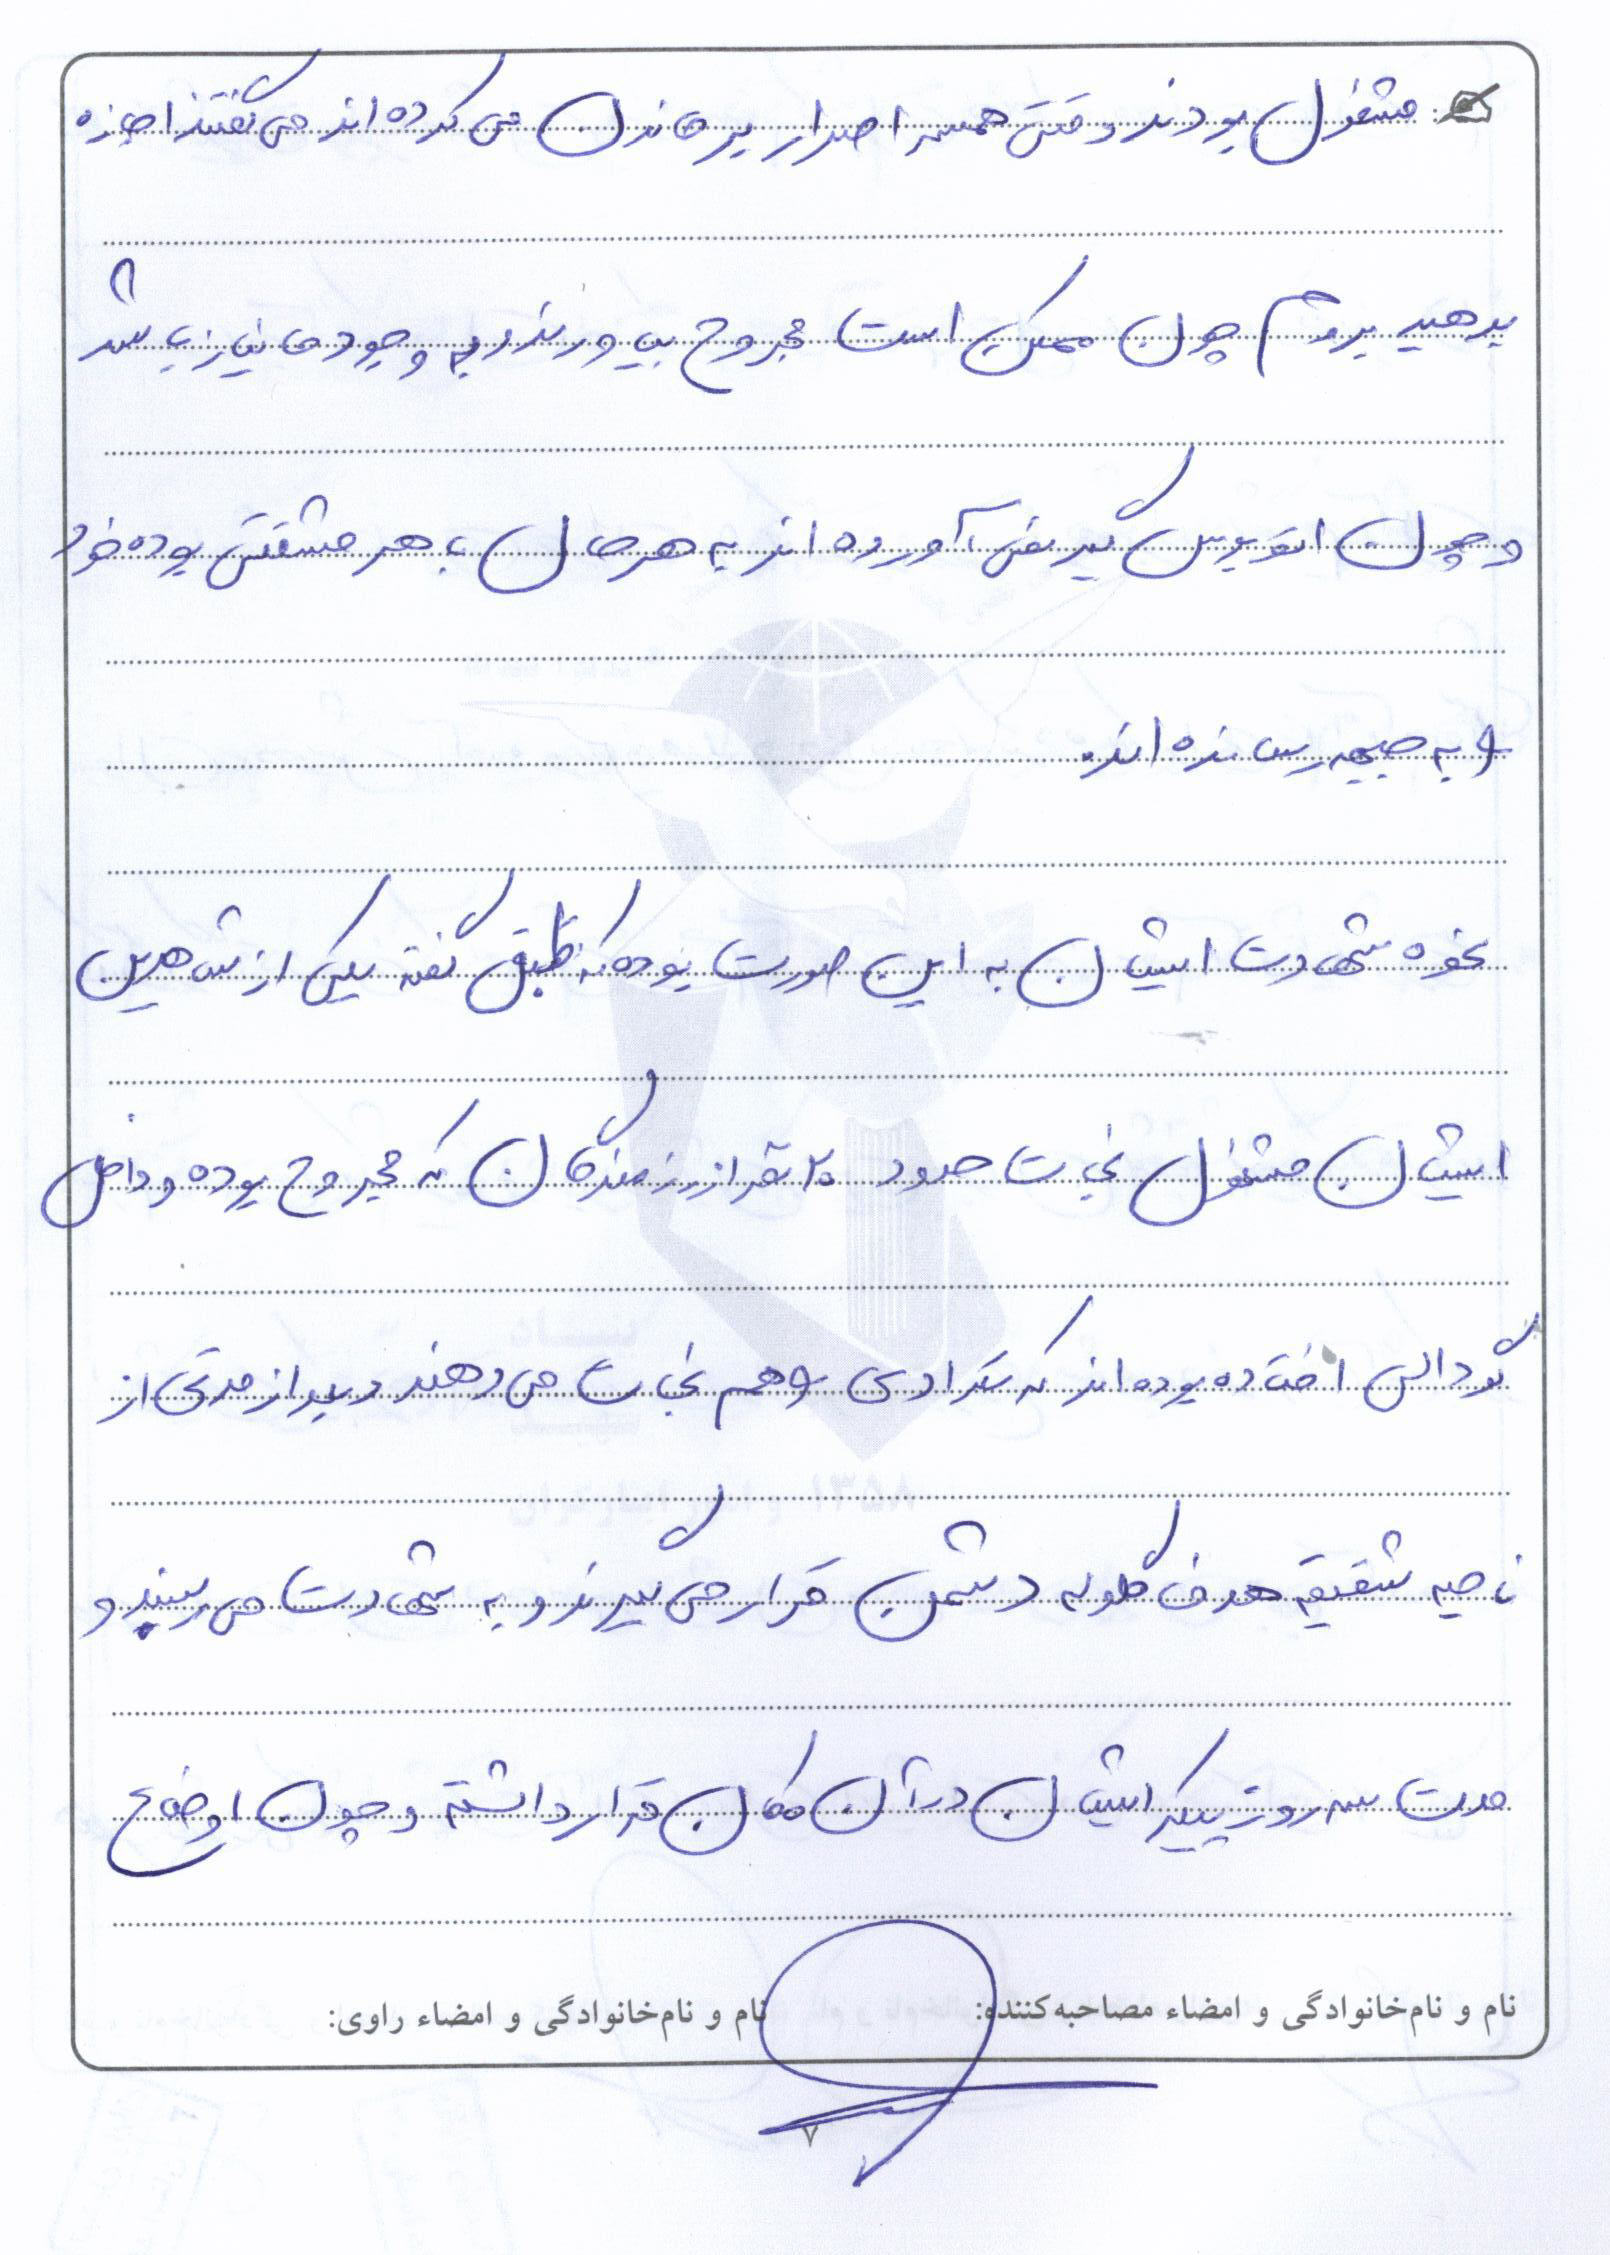 مشغول بودند وقتی همه اصرار بر ماندن می کرده اند می گفتند اجازه
بدهید بروم چون ممکن است مجروح بیاورند و به وجود ما نیاز باشد
و چون اتوبوس گیر نمی آورده اند به هر حال با هر مشقتی بوده خود
را به جبهه رسانده اند.
نحوه شهادت ایشان به این صورت بوده که طبق گفته یکی از شاهدین
ایشان مشغول نجات حدود ۲۰ نفر از رزمندگان که مجروح بوده و داخل
گودالی افتاده بوده اند که تعدادی را هم نجات می دهند و بعد از مدتی از
ناحیه شقیقه هدف گلوله دشمن قرار می گیرند و به شهادت می رسند و
مدت سه روز پیکر ایشان در آن مکان قرار داشته و چون اوضاع
نام و نام‌خانوادگی و امضاء مصاحبه‌کننده:
نام و نام‌خانوادگی و امضاء راوی:
۷